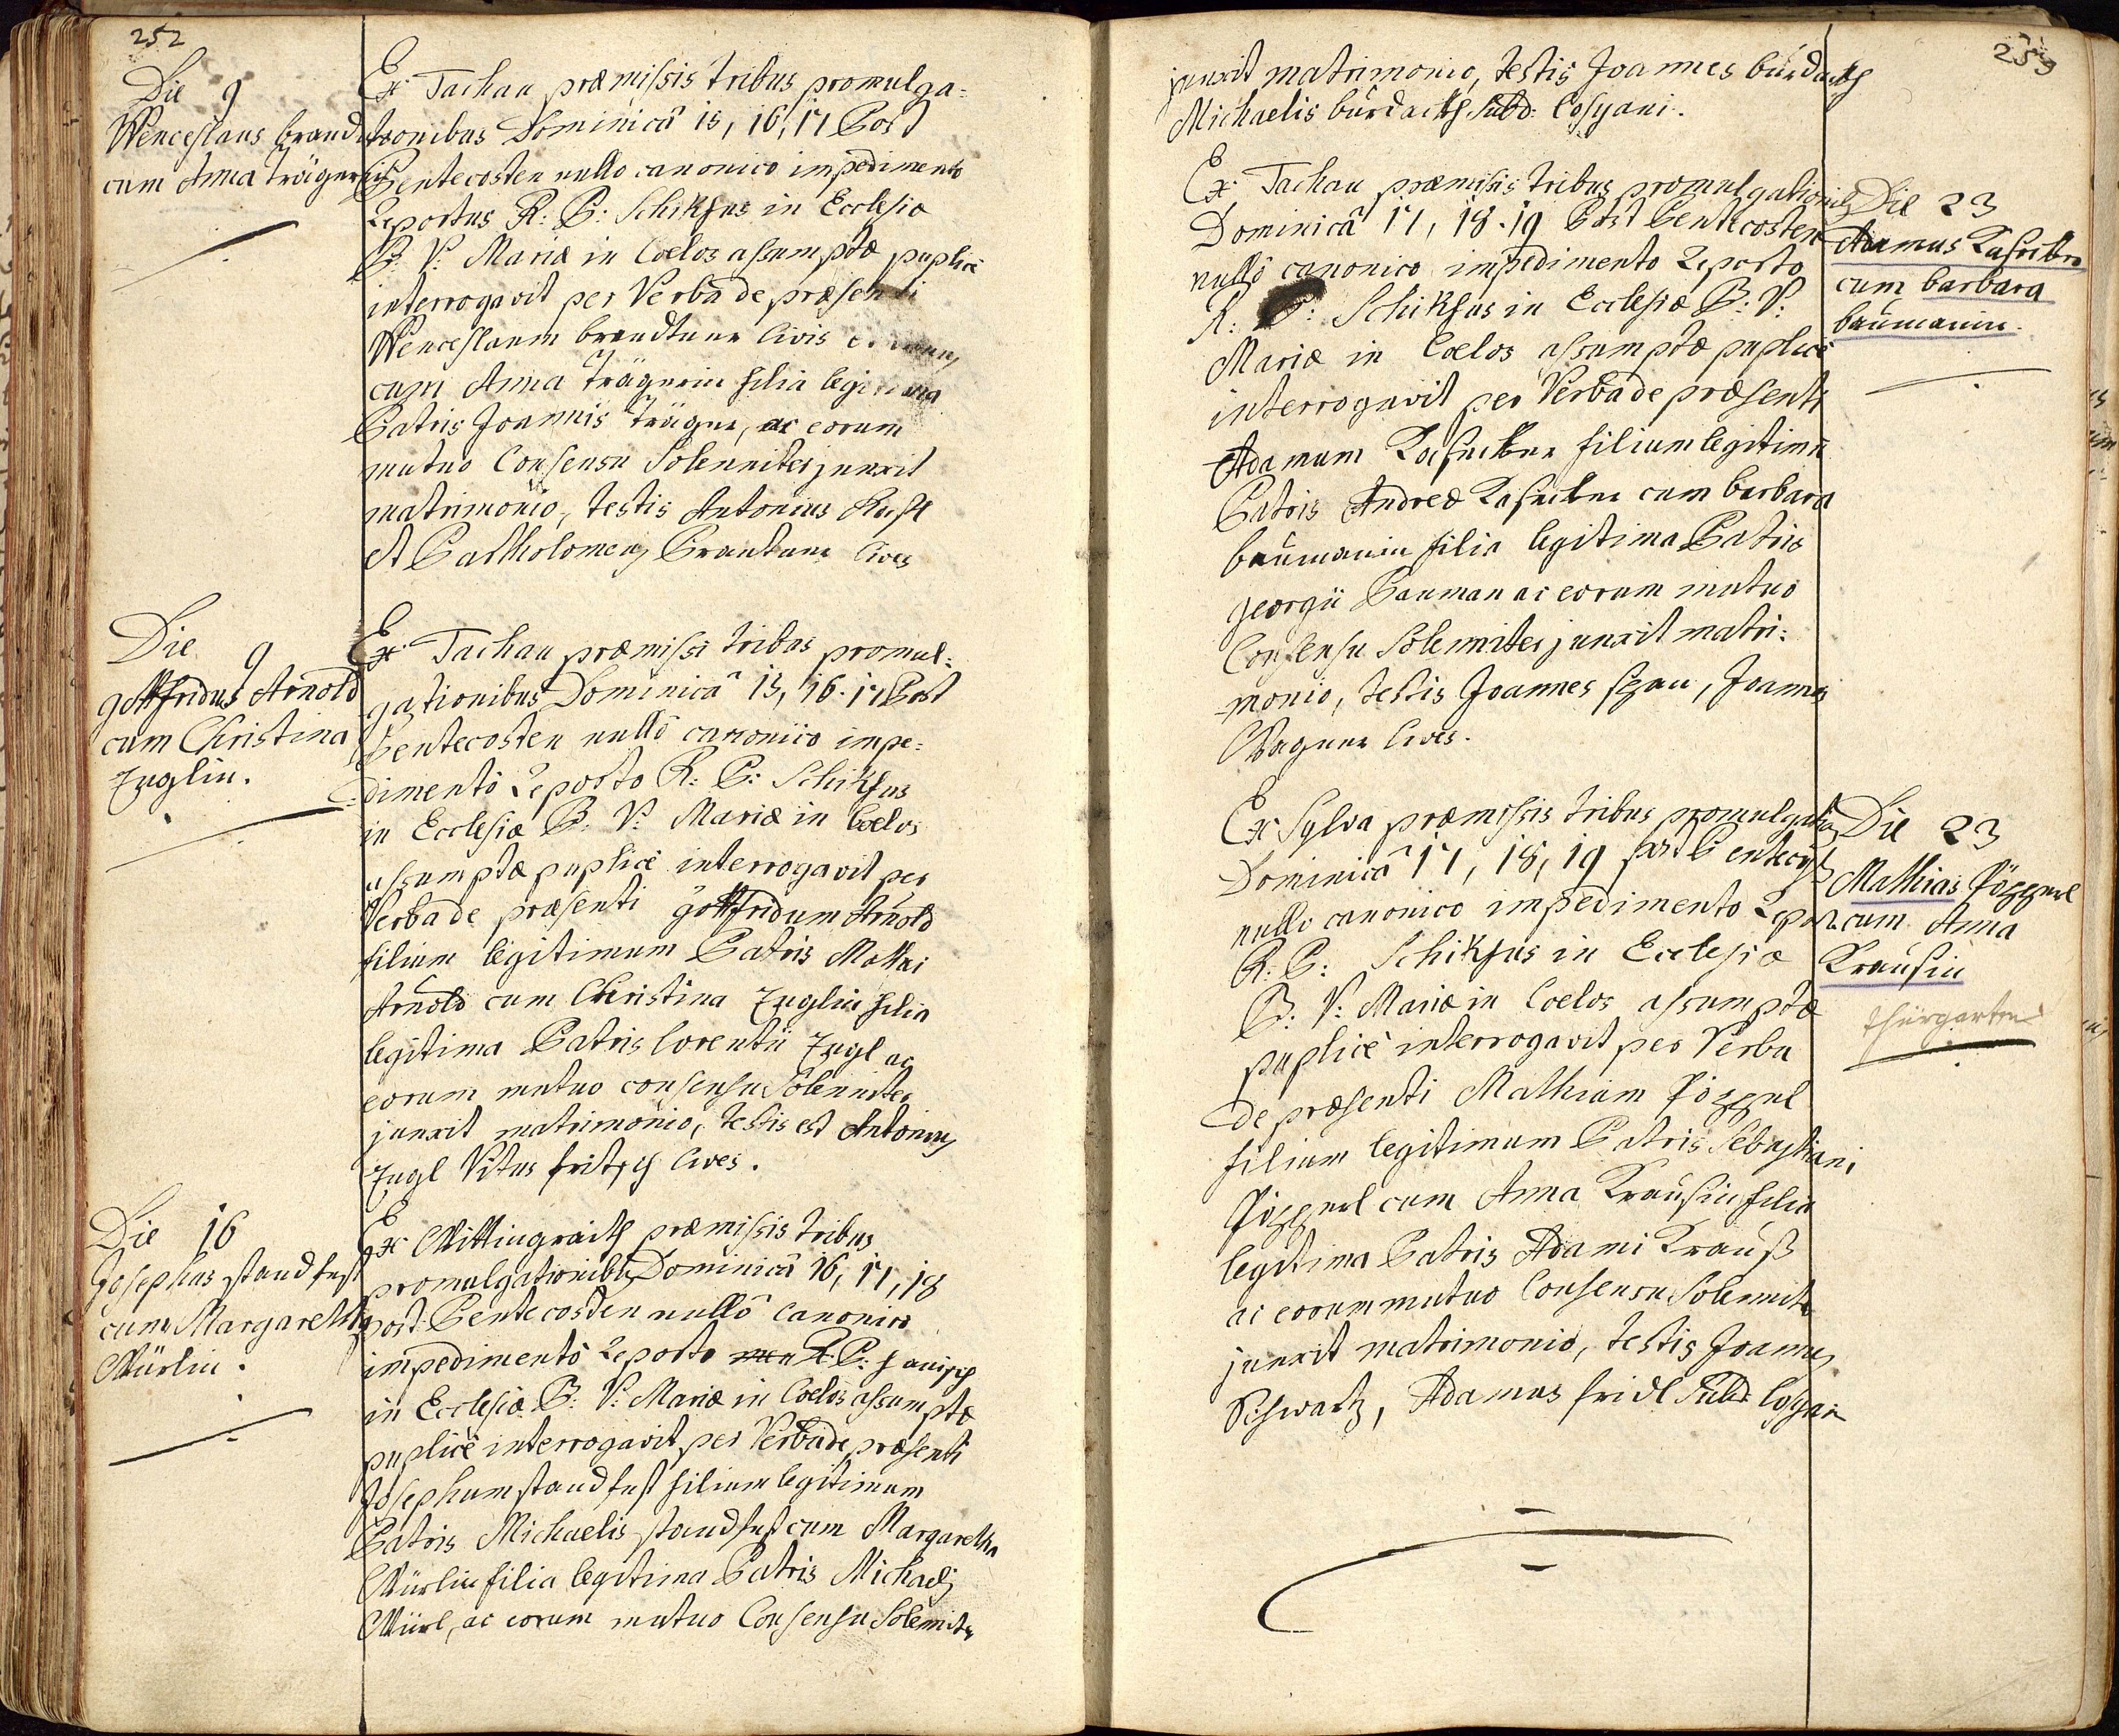 252
Die 9
Wenceslaus brandtner
cum Anna Trägnerin
Ex Tachau præmissis tribus promulga=
tionibus Dominicâ 15, 16, 17 Post
Pentecosten nullo canonico impedimento
Reportus R: P: Schikfus in Ecclesia
B: V: Mariæ in Coelos assumptæ puplicè
interrogavit per Verba de præsenti
Wenceslaum brandtner Civis
cum Anna Trägnerin filia legitima
Patris Joannis Trägner, ac eorum
mutuo Consensu Solenniter junxit
matrimonio, testis Antonius
et Partholomeus Prantner Cives
Die 9
gottfridus Arnold
cum Christina
Englin.
Ex Tachau præmissi tribus promul=
gationibus Dominicâ 15, 16. 17 Post
Pentecosten nullô canonico impe=
dimentô Reporto R: P: Schikfus
in Ecclesiæ B. V: Mariæ in Coelos
assumptæ puplicè interrogavit per
Verba de præsenti gottfridum Arnold
filium legitimum Patris Mathæi
Arnold cum Christina Englin filia
legitima Patris Lorentii Engl ac
eorum mutuo consensu Solenniter
junxit matrimonio, testis est Antonius
Engl Vitus fritsch Cives.
Die 16
Josephus standfest
cum Margaretha
Würlin.
Ex Wittingraith præmissis tribus
promulgationibus Dominicâ 16, 17, 18
post Pentecosten nullô Canonico
impedimentô Reporto R: P: Hanisch
in Ecclesiæ B: V: Mariæ in Coelos assumptæ
puplicè interrogavit per Verba de præsenti
Josephum standfest filium legitimum
Patris Michaelis standfest cum Margaretha
Würlin filia legitima Patris Michaelis
Würl, ac eorum mutuo Consensu Solemniter
253
junxit matrimonio, testis Joannes burdachs
Michaelis burdachs Subd: Cosgani.
Ex Tachau præmissis tribus promulgationibus
Dominicâ 17, 18. 19 Post Pentecosten
nullô canonico impedimento Reporto
R: P: Schikfus in Ecclesiæ B: V:
Mariæ in Coelos assumptæ puplicè
interrogavit per Verba de præsenti
Adamum filium legitimū
Patris Andreæ cum barbara
baumanin filia legitima Patris
georgii Pauman ac eorum mutuo
Consensu Solenniter junxit matri=
monio, testis Joannes, Joannes
Wagner Cives.
Die 23
Adamus
cum barbara
baumanin.
Ex Sylva præmissis tribus promulgatio
Dominicâ 17, 18, 19 post Pentecost
nullo canonico impedimento Repor
R: P: Schikfus in Ecclesia
B: V: Mariæ in Coelos assumptæ
puplicè interrogavit per Verba
de præsenti Mathiam Pözzerl
filium legitimum Patris Sebastiani
Pözzerl cum Anna Krausin filia
legitima Patris Adami Krauß
ac eorum mutuo Consensu Solennite
junxit matrimonio, testis Joannes
Schwartz, Adamus fridl Subd
Die 23
Mathias Pözzerl
cum Anna
Krausin
thürgarten